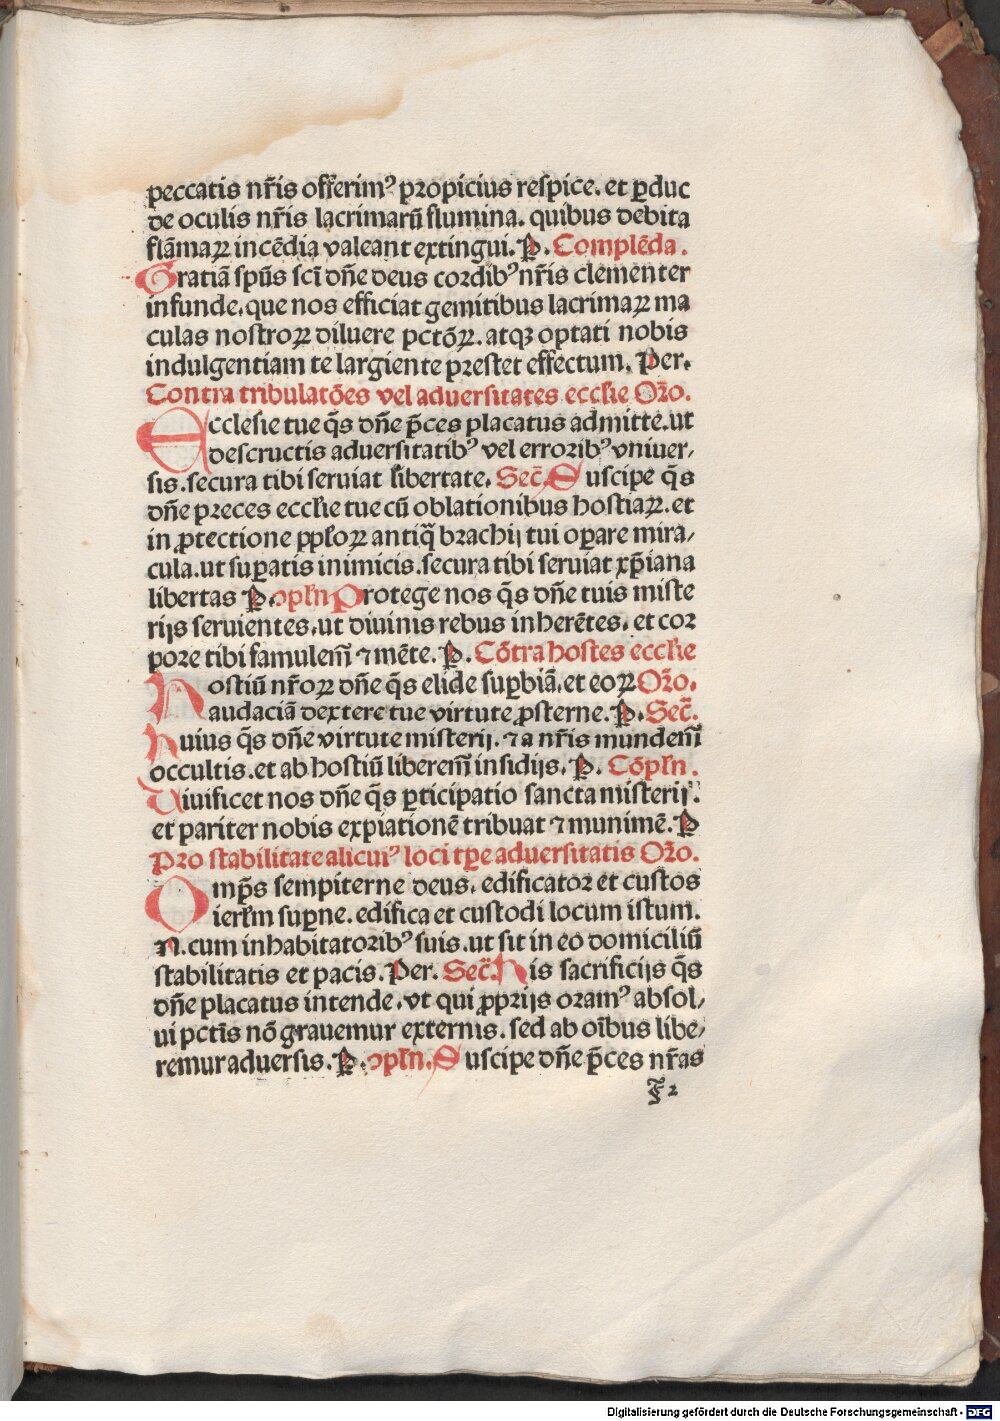 peccatis nr̄is offerimꝰ propicius respice. et ꝑduc
de oculis nr̄is lacrimarū flumina. quibus debita
flāmaꝝ incēdia valeant extingui. P. Complēda.
Gratiā sp̄us sc̄i dn̄e deus cordibꝰ nr̄is clementer
infunde. que nos efficiat gemitibus lacrimaꝝ ma
culas nostroꝝ diluere pctōꝝ. atqꝫ optati nobis
indulgentiam te largiente prestet effectum. Per.
Contra tribulatōes vel aduersitates eccl̄ie Or̄o.
Ecclesie tue q̄s dn̄e p̄ces placatus admitte. ut
descructis aduersitatibꝰ vel erroribꝰ vniuer-
sis. secura tibi seruiat libertate. Secr̄. Suscipe q̄s
dn̄e preces eccl̄ie tue cū oblationibus hostiaꝝ. et
in ꝓtectione ppl̄oꝝ antiq̄ brachij tui oꝑare mira-
cula. ut suꝑatis inimicis. secura tibi seruiat xp̄iana
libertas P. ↄpl̄n Protege nos q̄s dn̄e tuis miste
rijs seruientes. ut diuinis rebus inherētes. et cor
pore tibi famulem̄ ⁊ mēte. P. Cōtra hostes eccl̄ie
Hostiū nr̄oꝝ dn̄e q̄s elide suꝑbiā. et eoꝝ Or̄o.
audaciā dextere tue virtute ꝓsterne. P. Secr̄.
Huius q̄s dn̄e virtute misterij. ⁊ a nr̄is mundem̄
occultis. et ab hostiū liberem̄ insidijs. P. Cōpl̄n.
Viuificet nos dn̄e q̄s ꝑticipatio sancta misterij.
et pariter nobis expiationē tribuat ⁊ munimē. P
Pro stabilitate alicuiꝰ loci tꝑe aduersitatis Or̄o.
Omp̄s sempiterne deus. edificator et custos
ierl̄m suꝑne. edifica et custodi locum istum.
N. cum inhabitatoribꝰ suis. ut sit in eo domiciliū
stabilitatis et pacis. Per. Secr̄. His sacrificijs q̄s
dn̄e placatus intende. vt qui ꝓprijs oramꝰ absol-
ui pctīs nō grauemur externis. sed ab oībus libe-
remur aduersis. P. ↄpl̄n. Suscipe dn̄e p̄ces nr̄as
Digitalisierung gefördert durch die Deutsche Forschungsgemeinschaft - DFG